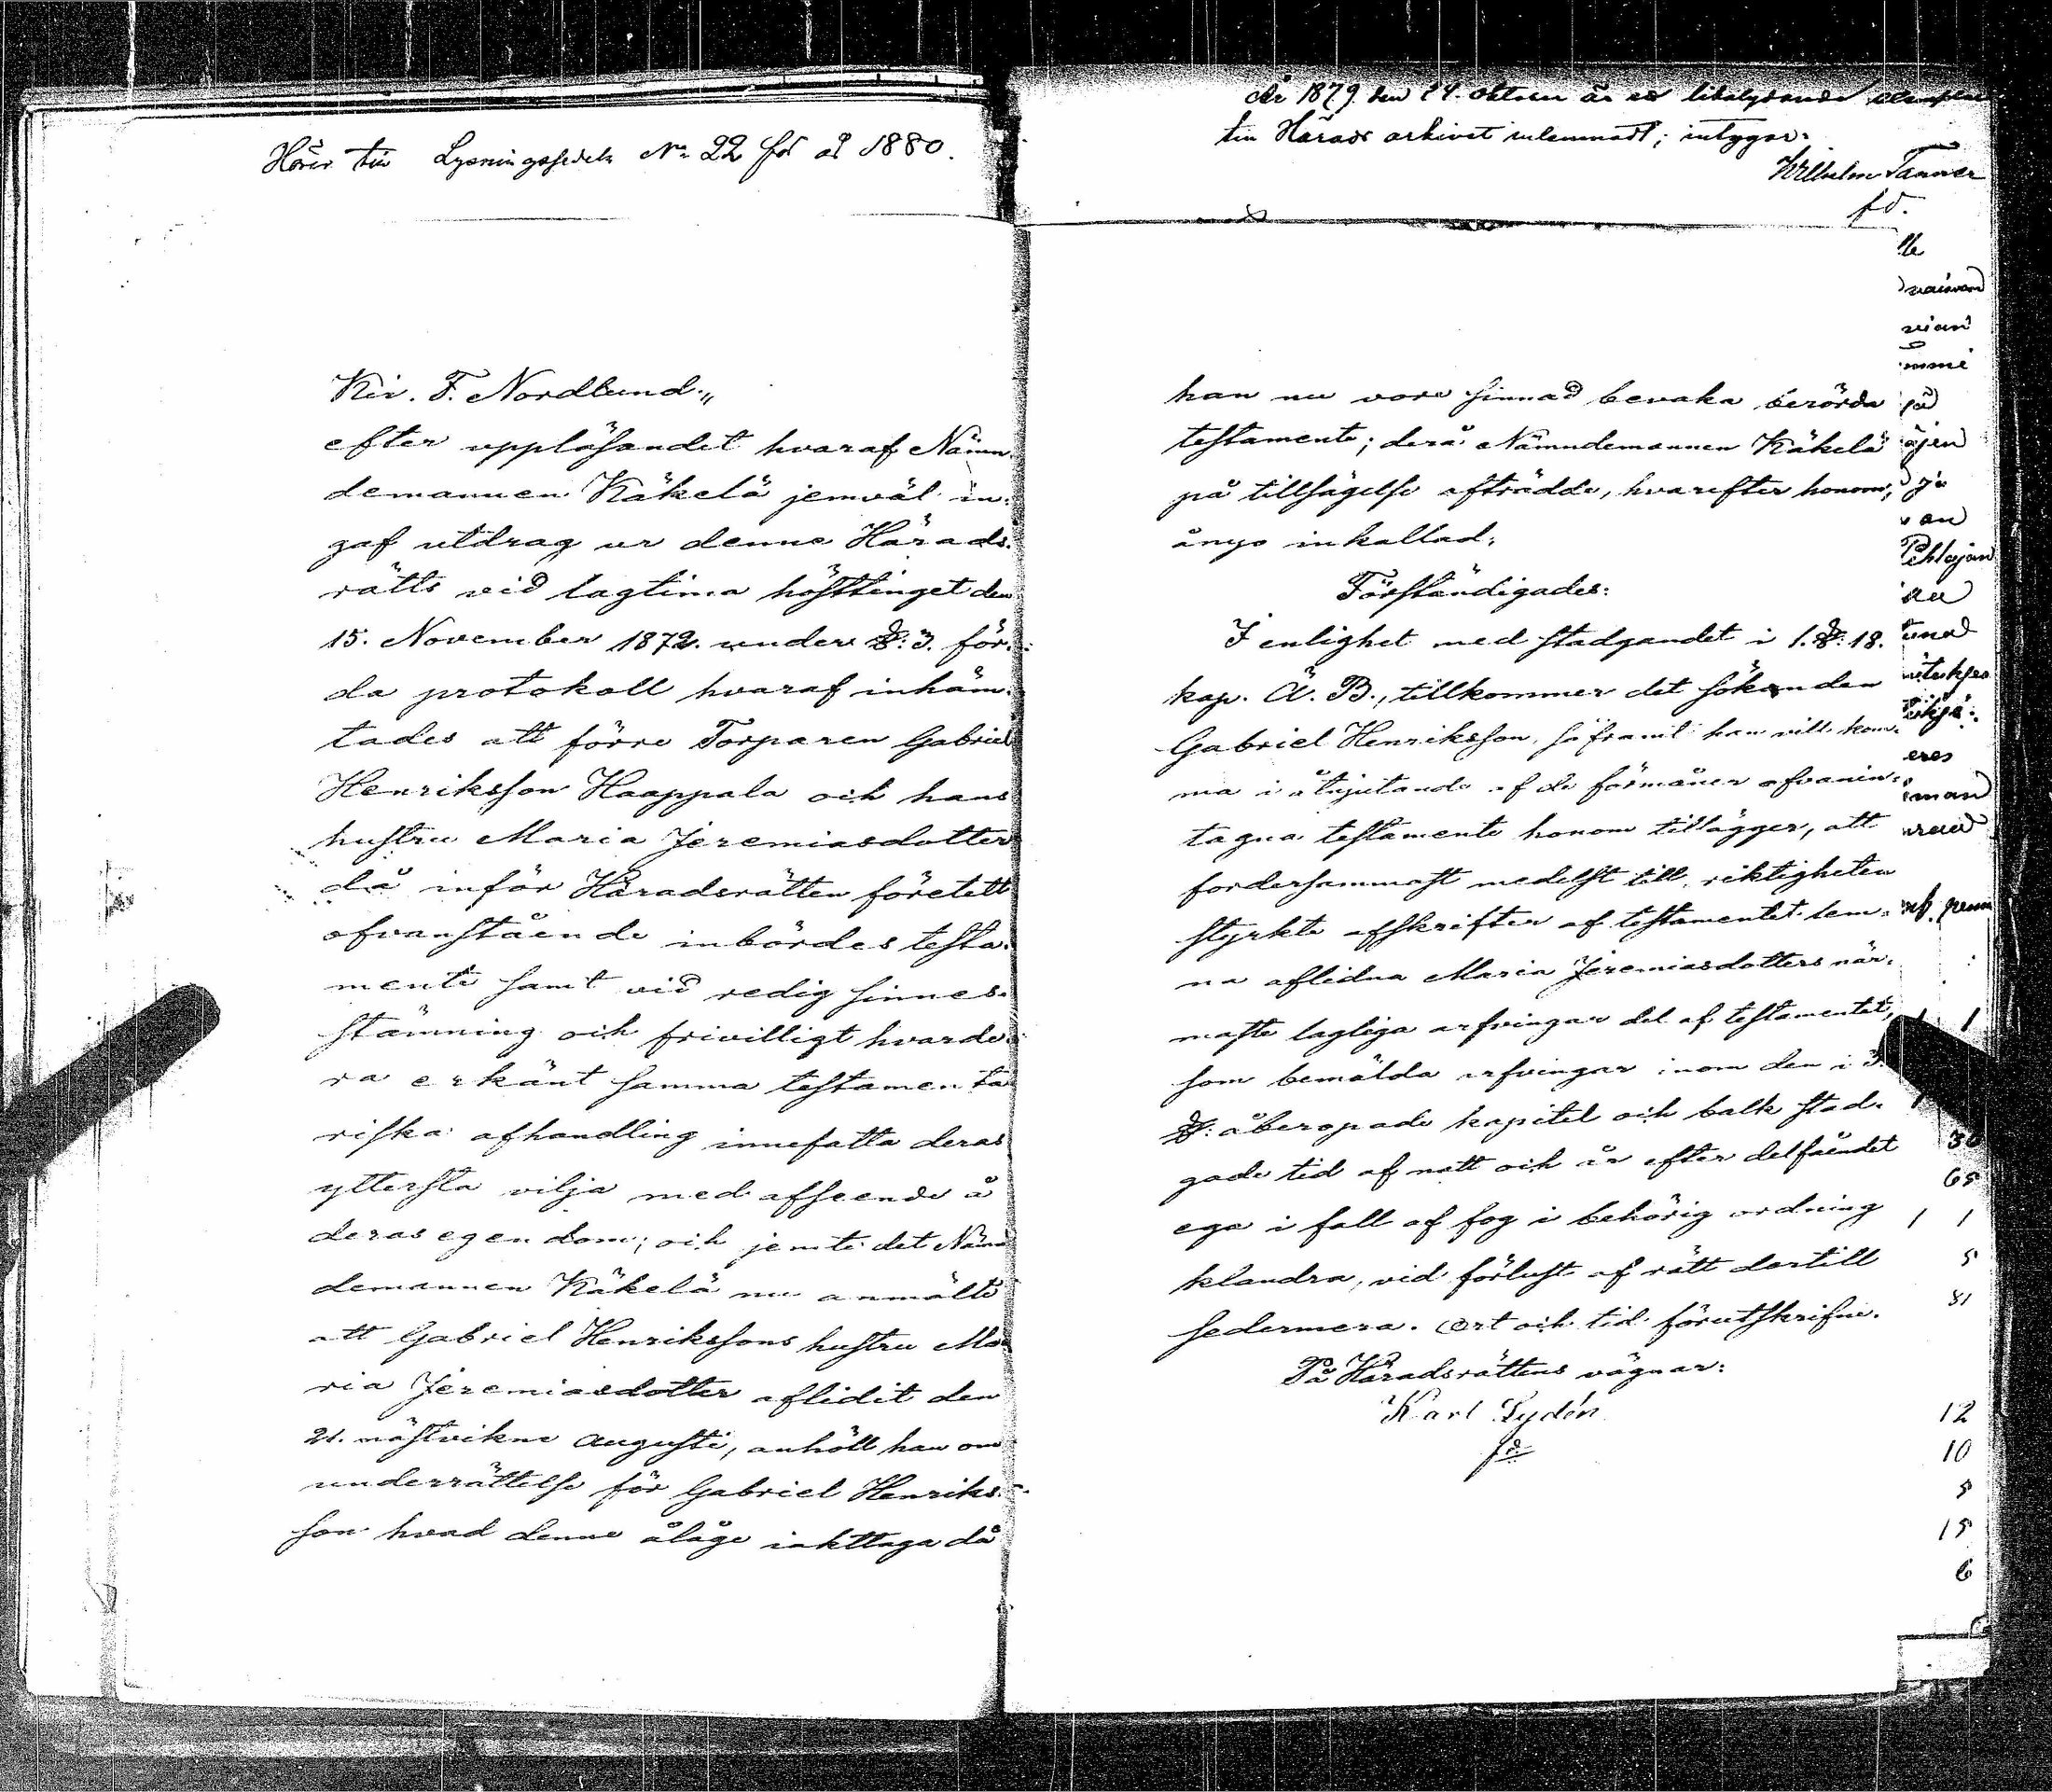 Hörer till Lysningssedeln No 22 för år 1880.
Kir. F. Nordlund.„
efter uppläsandet hvaraf Nämn-
demannen Käkelä jemväl in-
gaf utdrag ur denne Härads-
rätts vid lagtima hösttinget den
15. November 1872. under §: 3. för-
da protokoll hvaraf inhäm-
tades att förre Torparen Gabriel
Henriksson Haappala och hans
hustru Maria Jeremiasdotter
då inför Häradsrätten företett
ofvanstående inbördes testa-
mente samt vid redig sinnes-
stämning och frivilligt hvarde-
ra erkänt samma testamenta
riska afhandling innefatta deras
yttersta vilja med afseende å
deras egendom; och jemte det Näm
demannen Käkelä nu anmälte
att Gabriel Henrikssons hustru Ma-
ria Jeremiasdotter aflidit den
21. nästvikne Augusti, anhöll han om
underrättelse för Gabriel Henriks-
son hvad denne ålåge iakttaga då
År 1879 den 24. oktober är ett likalydande exemplar
till Härads arkivet inlemnadt; intygar:
Wilhelm Tanner
fd.
han nu vore sinnad bevaka berörda
testamente; derå Nämndemannen Käkelä
på tillsägelse afträdde, hvarefter honom,
ånyo inkallad,
Förständigades:
I enlighet med stadgandet i 1. §: 18.
kap. Ä. B., tillkommer det sökanden
Gabriel Henriksson, såframt han vill kom-
ma i åtnjutande af de förmåner ofvanin-
tagna testamente honom tillägger, att
fordersammast medelst till riktigheten
styrkte afskrifter af testamentet lem-
na aflidna Maria Jeremiasdotters när-
maste lagliga arfvingar del af testamentet,
som bemälda arfvingar inom den i 3.
§: åberopade kapitel och balk stad-
gade tid af natt och år efter delfåendet
ega i fall af fog i behörig ordning
klandra, vid förlust af rätt dertill
sedermera. Ort och tid förutskrifne.
På Häradsrättens vägnar:
Karl Lydén
fd
vian
mmi
på
äjen
ja
an
Pihlajan
eres
man
1 1
30
65
1 1
5
81
12
10
5
15
6